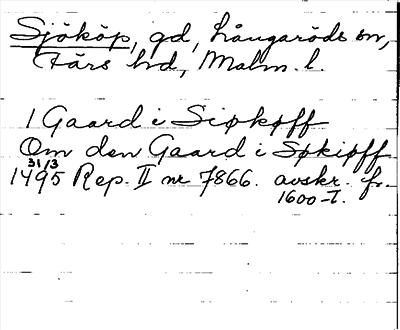 Sjököp, gd, Långaröds sn,
Färs hd, Malm. l.
1 Gaard i Siøkøff
Om den Gaard i Søkiøff
31/3
1495 Rep. II nr 7866. avskr. fr.
1600-t.